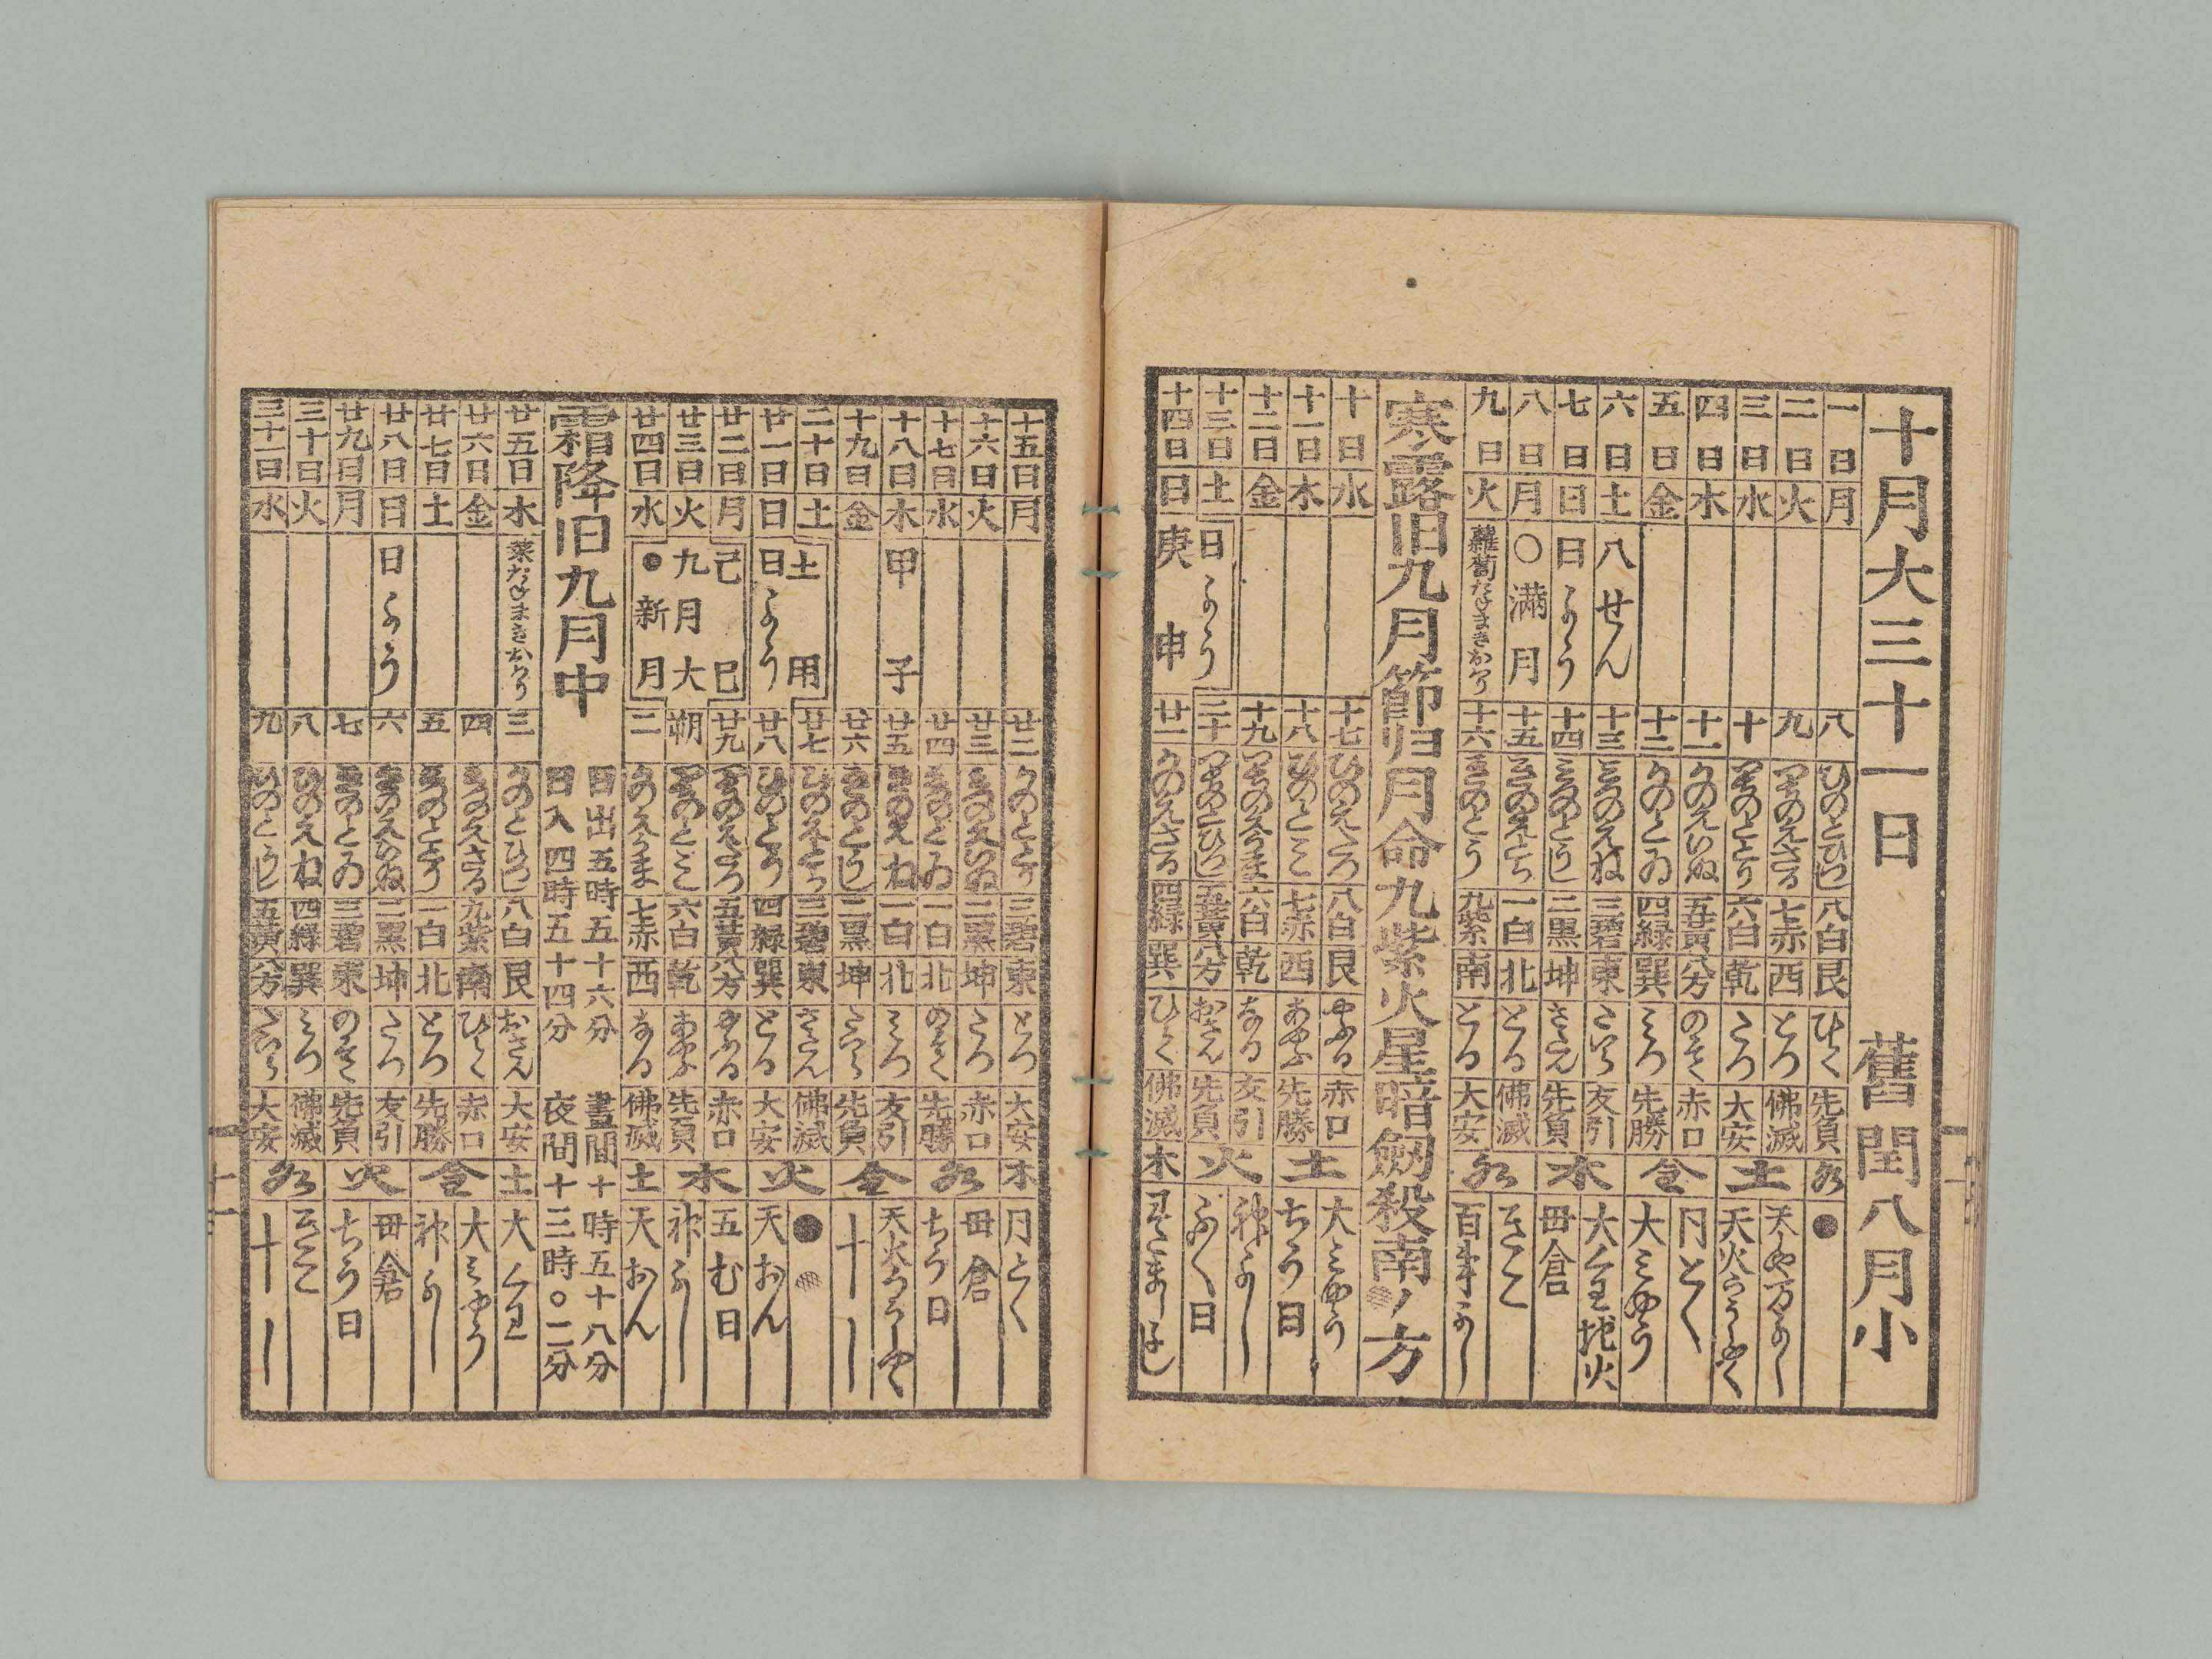 十月大三十一日 舊閏八月小
一日 月 八 ひのとひつじ 八白 艮 ひらく 先負
二日 火 九 つちのえさる 七赤 西 とづ 佛滅
三日 水 十 つちのととり 六白 乾 たつ 大安
四日 木 十一 かのえいぬ 五黄 八方 のぞく 赤口
五日 金 十二 かのとゐ 四緑 巽 みつ 先勝
六日 土 八せん 十三 みづのえね 三碧 東 たいら 友引
七日 日 日よう 十四 みづのとうし 二黒 坤 さだん 先負 母倉
八日 月 ○満月 十五 きのえとら 一白 北 とる 佛滅
九日 火 蘿蔔たねまきおわり 十六 きのとう 九紫 南 とる 大安
寒露旧九月節归月命九紫火星暗劔殺南ノ方
十日 水 十七 ひのえたつ 八白 艮 やぶる 赤口 大みやう
十一日 木 十八 ひのとみ 七赤 西 あやぶ 先勝 ちう日
十二日 金 十九 つちのえうま 六白 乾 なる 友引 神よし
十三日 土 日よう 二十 つちのとひつじ 五黄 八方 おさん 先負 ぶく日
十四日 日 庚申 廿一 かのえさる 四緑 巽 ひらく 佛滅
木 火 土 水 金 土
十五日 月 廿二 かのととり 三碧 東 とづ 大安 月とく
十六日 火 廿三 みづのえいぬ 二黒 坤 たつ 赤口 母倉
十七日 水 廿四 みづのとゐ 一白 北 のぞく 先勝 ちう日
十八日 木 甲子 廿五 きのえね 一白 北 みつ 友引
十九日 金 廿六 きのとうし 二黒 坤 たいら 先負 十し
二十日 土 土用 廿七 ひのえとら 三碧 東 さだん 佛滅
廿一日 日 日よう 廿八 ひのとう 四緑 巽 とる 大安 天おん
廿二日 月 己巳 廿九 つちのえたつ 五黄 八方 やぶる 赤口 五む日
廿三日 火 九月大 朔 つちのとみ 六白 乾 あやぶ 先負 神よし
廿四日 水 ●新月 二 かのえうま 七赤 西 なる 佛滅 天おん
霜降旧九月中 日出五時五十六分 晝間十時五十八分
日入四時五十四分 夜間十三時○二分
廿五日 木 菜たねまきおわり 三 かのとひつじ 八白 艮 おさん 大安
廿六日 金 四 みづのえさる 九紫 南 ひらく 赤口 大みやう
廿七日 土 五 みづのととり 一白 北 とづ 先勝 神よし
廿八日 日 日よう 六 きのえいぬ 二黒 坤 たつ 友引 母倉
廿九日 月 七 きのとゐ 三碧 東 のぞく 先負 ちう日
三十日 火 八 ひのえね 四緑 巽 みつ 佛滅
三十一日 水 九 ひのとうし 五黄 八方 たいら 大安 十し
十一